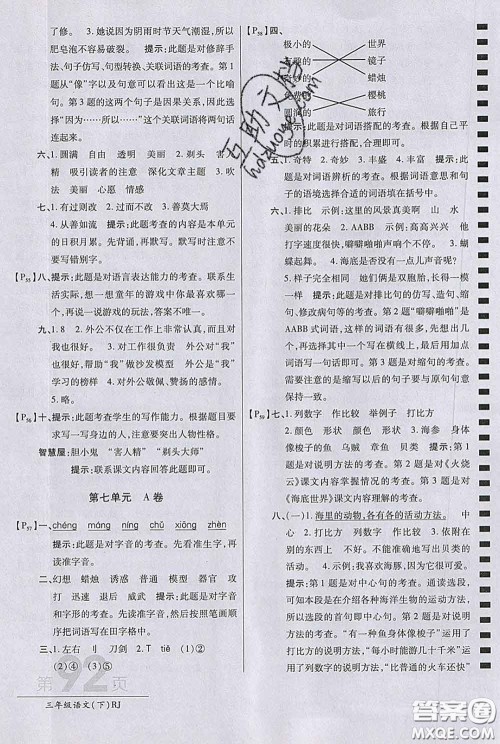 了修。 3. 她说因为阴雨时节天气潮湿,所以
肥皂泡不容易破裂。 提示:此题是对修辞手
法、句子仿写、句型转换、关联词语的考查。第1
题“像”字以及句意可以看出这是一个比喻
句。第3题的这两个句子是因果关系,所以选
择“因为……所以……”的关联词语将两句话
连起来。
六、1. 圆满 自由 透明 美丽 2. 害 吉
精 吸引读者的注意 深化文章主题 3. 吹
法 美丽 心愿 情感
七、1. 有过则改 2. 过而不改 3. 人谁无过
4. 从善如流 提示:此题考查的内容是本单元
的日积月累。先背诵,再默写。默写时注意不
要写错别字。
[P55]八、提示:此题是对语言表达能力的考查。联系生
活实际,想一想童年的游戏中你最喜欢哪一
个,再说一说游戏的玩法,答案不唯一。
九、1. 8 2. 外公不仅在工作上非常认真,而且对
我们也非常好。 3. 外公帮“我”削铅笔 外公
帮“我”做沙发模型 4. 外公是值得“我”
学习的榜样 对外公敬佩、赞扬的感情。
5. 略。
[P56]十、提示:此题考查学生的写作能力。根据要求写
一写身边的人,注意要突出人物性格。
智慧屋:胆小鬼 “害人精” “剃头大师”
提示:联系课文内容回答此题即可。
第七单元 A卷
[P57]一、chéng máng níng chí xiōng zhèn
提示:此题是对字音的考查。先看准生字,再
读准字音。
二、幻想 蜡烛 诱惑 普通 模型 器官 攻
打 迅速 退后 威武 提示:此题是对
字音和字形的考查。先读准字音,然后按照笔画顺序
把词语写在田字格中。
三、左右 刂 刀剑 2. T tiě (1)②
(2)④ (3)⑤
第92页
三年级语文(下)RJ
[P58]四、
极小的 世界
镜子
奇妙的 蜡烛
免费的 樱桃
圆润的 旅行
提示:此题是对词语搭配的考查。根据自己平
时的积累进行搭配即可。
五、1. 奇特 2. 奇妙 3. 丰盛 4. 丰富 提示:
此题是对词语辨析的考查。根据词语意思和句
子的语境选择合适的词语填空即可。
六、1. 比 示例:这里的风景真美啊 山 水
美丽的花朵 2. AABB 示例:高高兴兴 他
打字速度很快,噼噼啪啪声响个不停。 3. 蝴
蝶起舞。 4. 海底是否没有一点儿声音呢?
5. 样子完全相同 她们俩是双胞胎,长得一模
一样。 提示:此题是对排比句的仿写、造句、
缩句、修改病句等的考查。第2题“噼噼啪啪”是
AABB式词语,写出一个填在横线上,最后用词
语写一句话即可。第3题是对缩句的考
查,需要注意的是缩写以后的句子要与原句句意
保持一致。
[P59]七、1. 列数字 作比较 举例子 打比方
2. 颜色 形状 颜色 形状 3. 海参 身体
像梭子的鱼 乌贼 章鱼 贝类 提示:第1
题是对说明方法的考查。第2题是对《火烧
云》课文内容掌握情况的考查。第3题是对
《海底世界》课文内容理解的考查。
八、(一)1. 海里的动物,各有各的活动方法。
中心 2. 打比方 列数字 作比较 3. 依附
在别的东西上 不好 现象 4. 示例:
它自己不动,却能免费旅行,写出贝类的活动
方法。 5. 示例:我喜欢海豚,因为它真可爱。
提示:第1题是对中心句的考查。通读选段,
可知这个选段介绍了各种各样海洋生物的
活动方法,中心句很容易就能找到。第2题是对
说明方法的考查。“有一种鱼身体像梭子”运用了
打比方的说明方法,“每小时能游几十千米”运用
了列数字的说明方法,“比普通的火车还快”